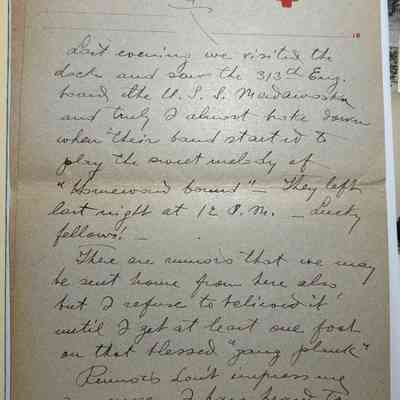 18
Last evening we visited the
dock and saw the 313th Eng.
board the U.S.S. Madawaska
and truly I almost broke down
when their band started to
play the sweet melody of
"Homeward bound" – They left
last night at 12 P.M. – Lucky
fellows! –
There are rumors that we may
be sent home from here also
but I refuse to believe it
until I get at least one foot
on that blessed "gang plank"
Rumors don't impress me
I have heard